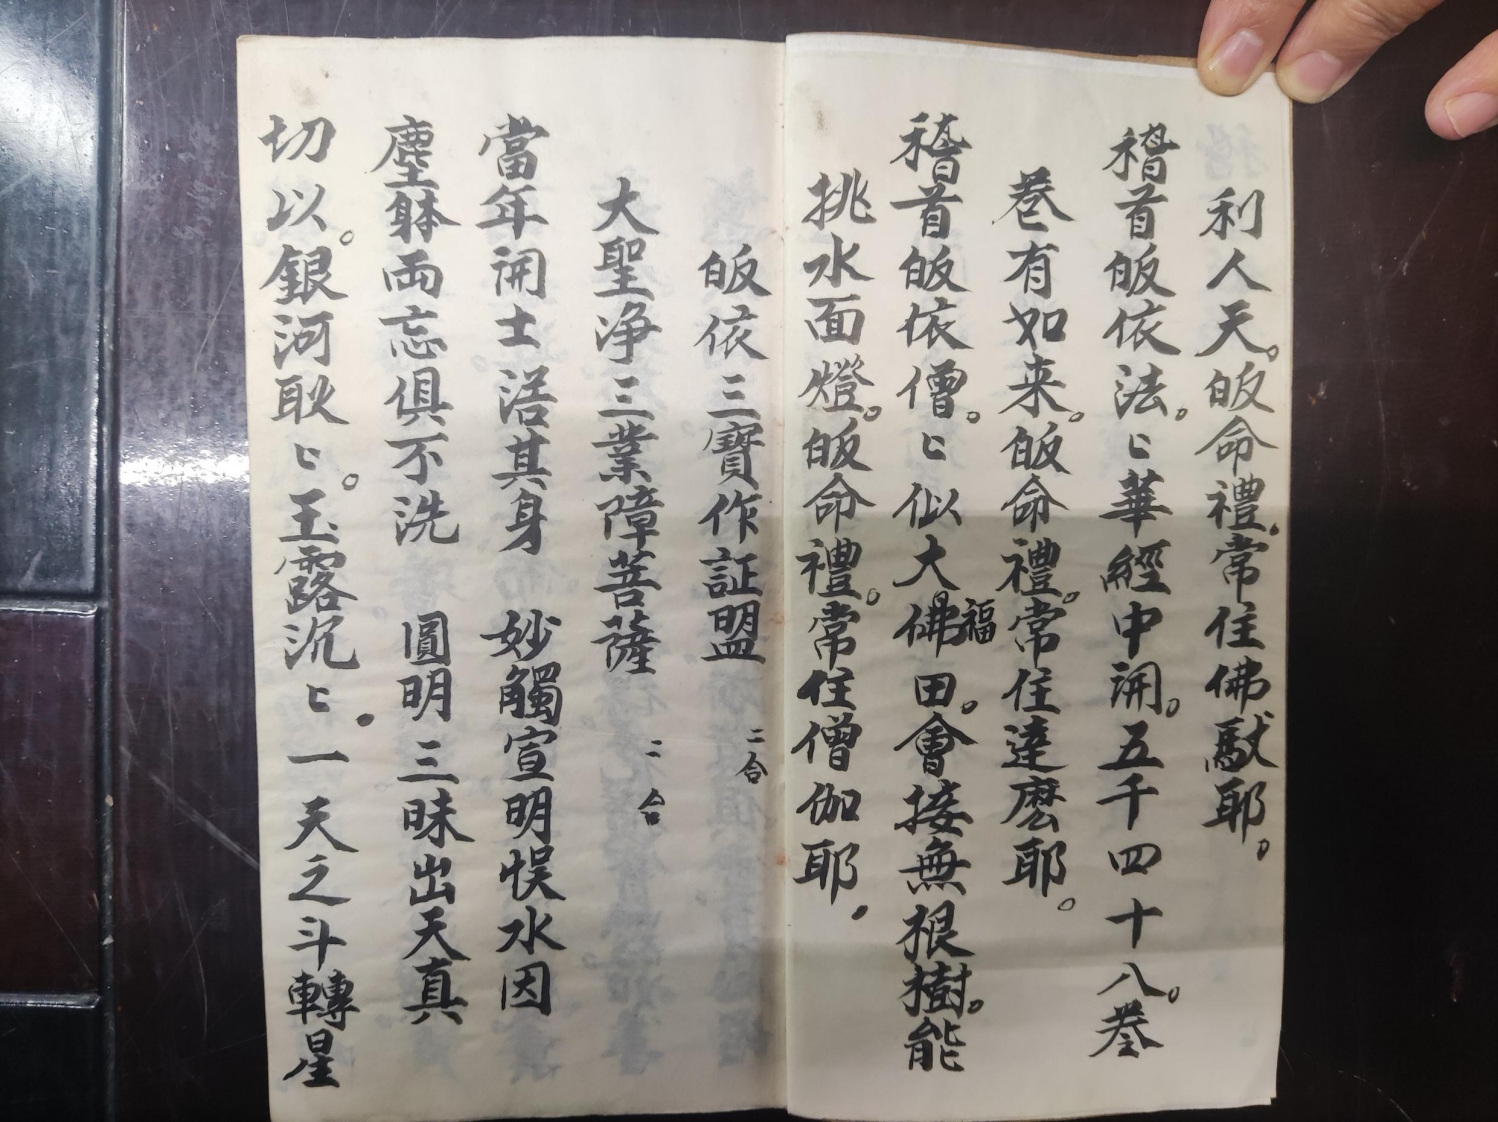 利人天。皈命禮。常住佛馱耶。
稽首皈依法。〻華經中開。五千四十八。卷
卷有如来。皈命禮。常住達麽耶。
稽首皈依僧。〻似大佛福田。會接無根樹。能
挑水面燈。皈命禮。常住僧伽耶。
皈依三寶作証盟 二合
大聖净三業障菩薩 二合
當年開士浴其身 妙觸宣明悮水因
塵躰両忘俱不洗 圓明三昧出天真
切以。銀河耿〻。玉露沉〻。一天之斗轉星